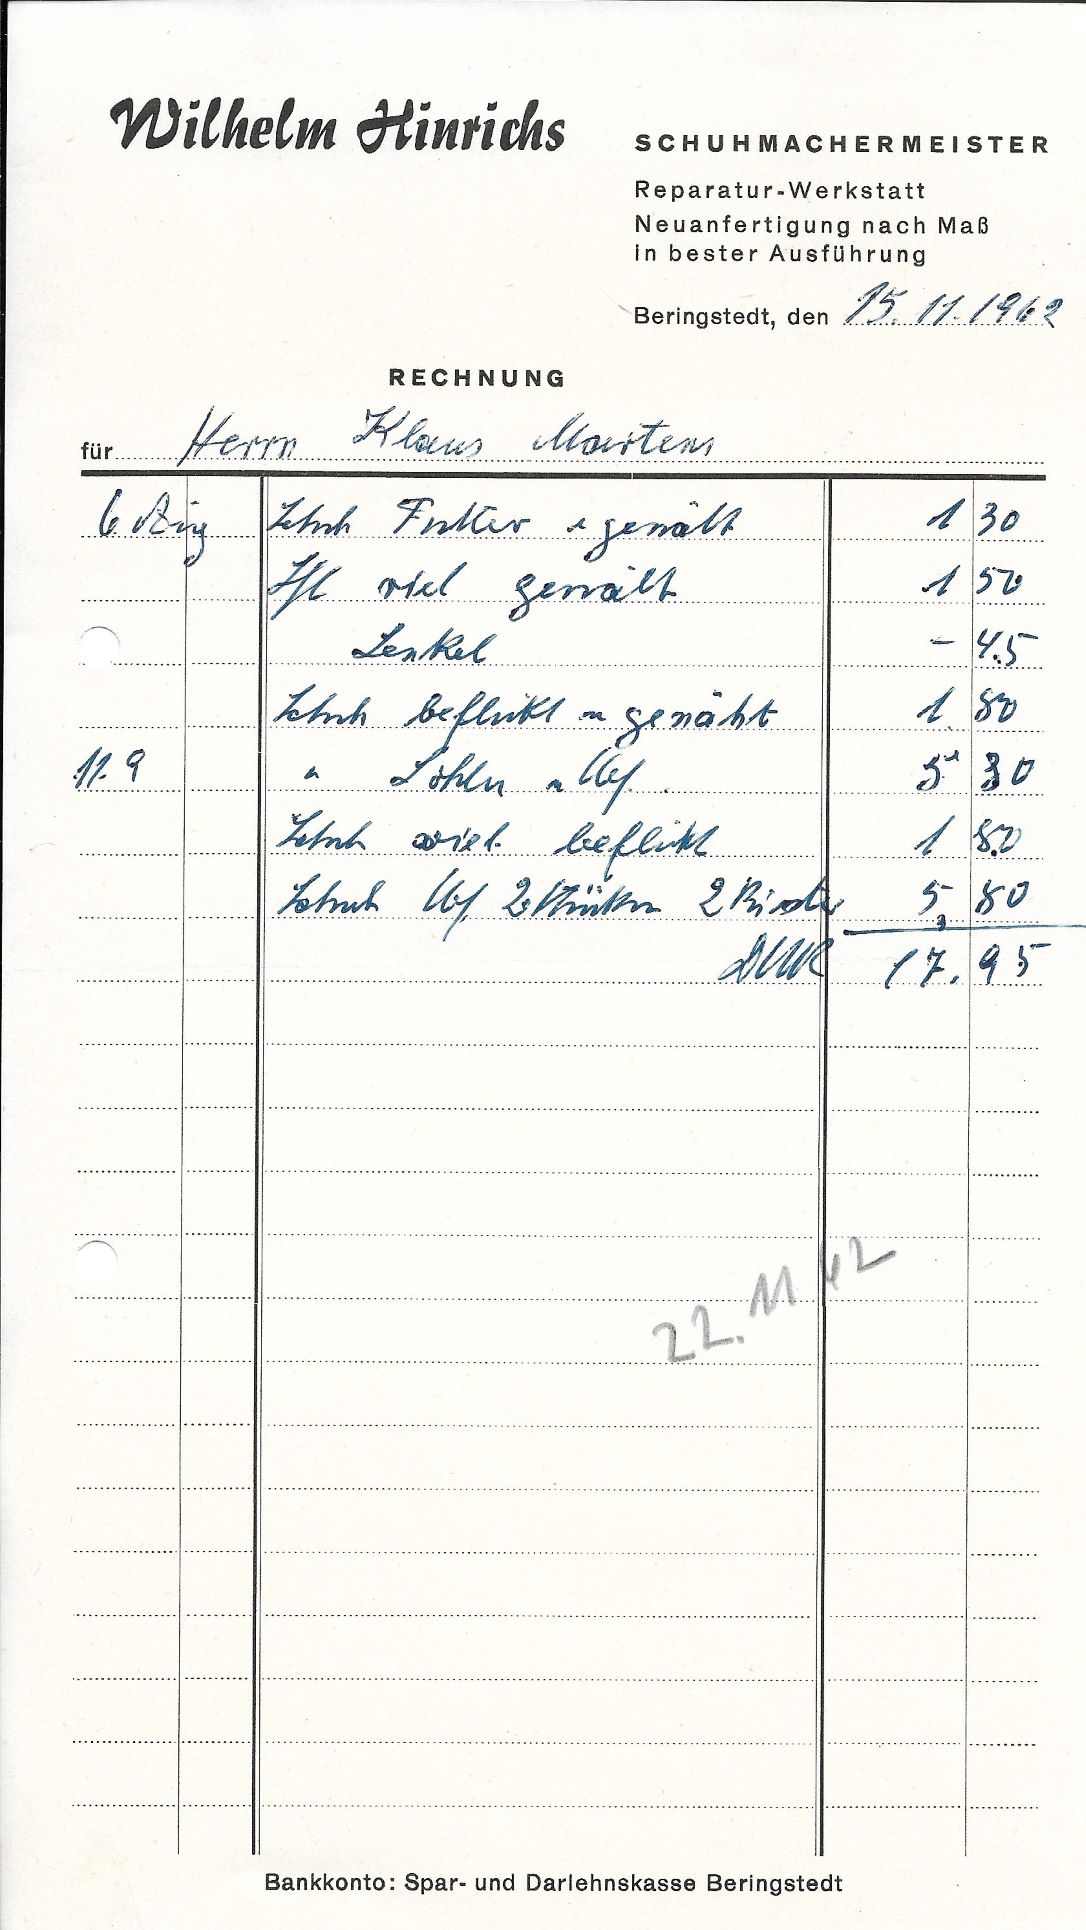 Wilhelm Hinrichs
SCHUHMACHERMEISTER
Reparatur-Werkstatt
Neuanfertigung nach Maß
in bester Ausführung
Beringstedt, den 15.11.1962
RECHNUNG
für Herrn Klaus Martens
6 Aug Schuh Futter genäht 1 30
viel genäht 1 50
Senkel - 45
Schuh beflickt u genäht 1 80
11.9 " Sohlen u Abs. 5 30
Schuh viel beflickt 1 80
Schuh Abs. 2 2 5,80
DM 17.95
22.11 62
Bankkonto: Spar- und Darlehnskasse Beringstedt